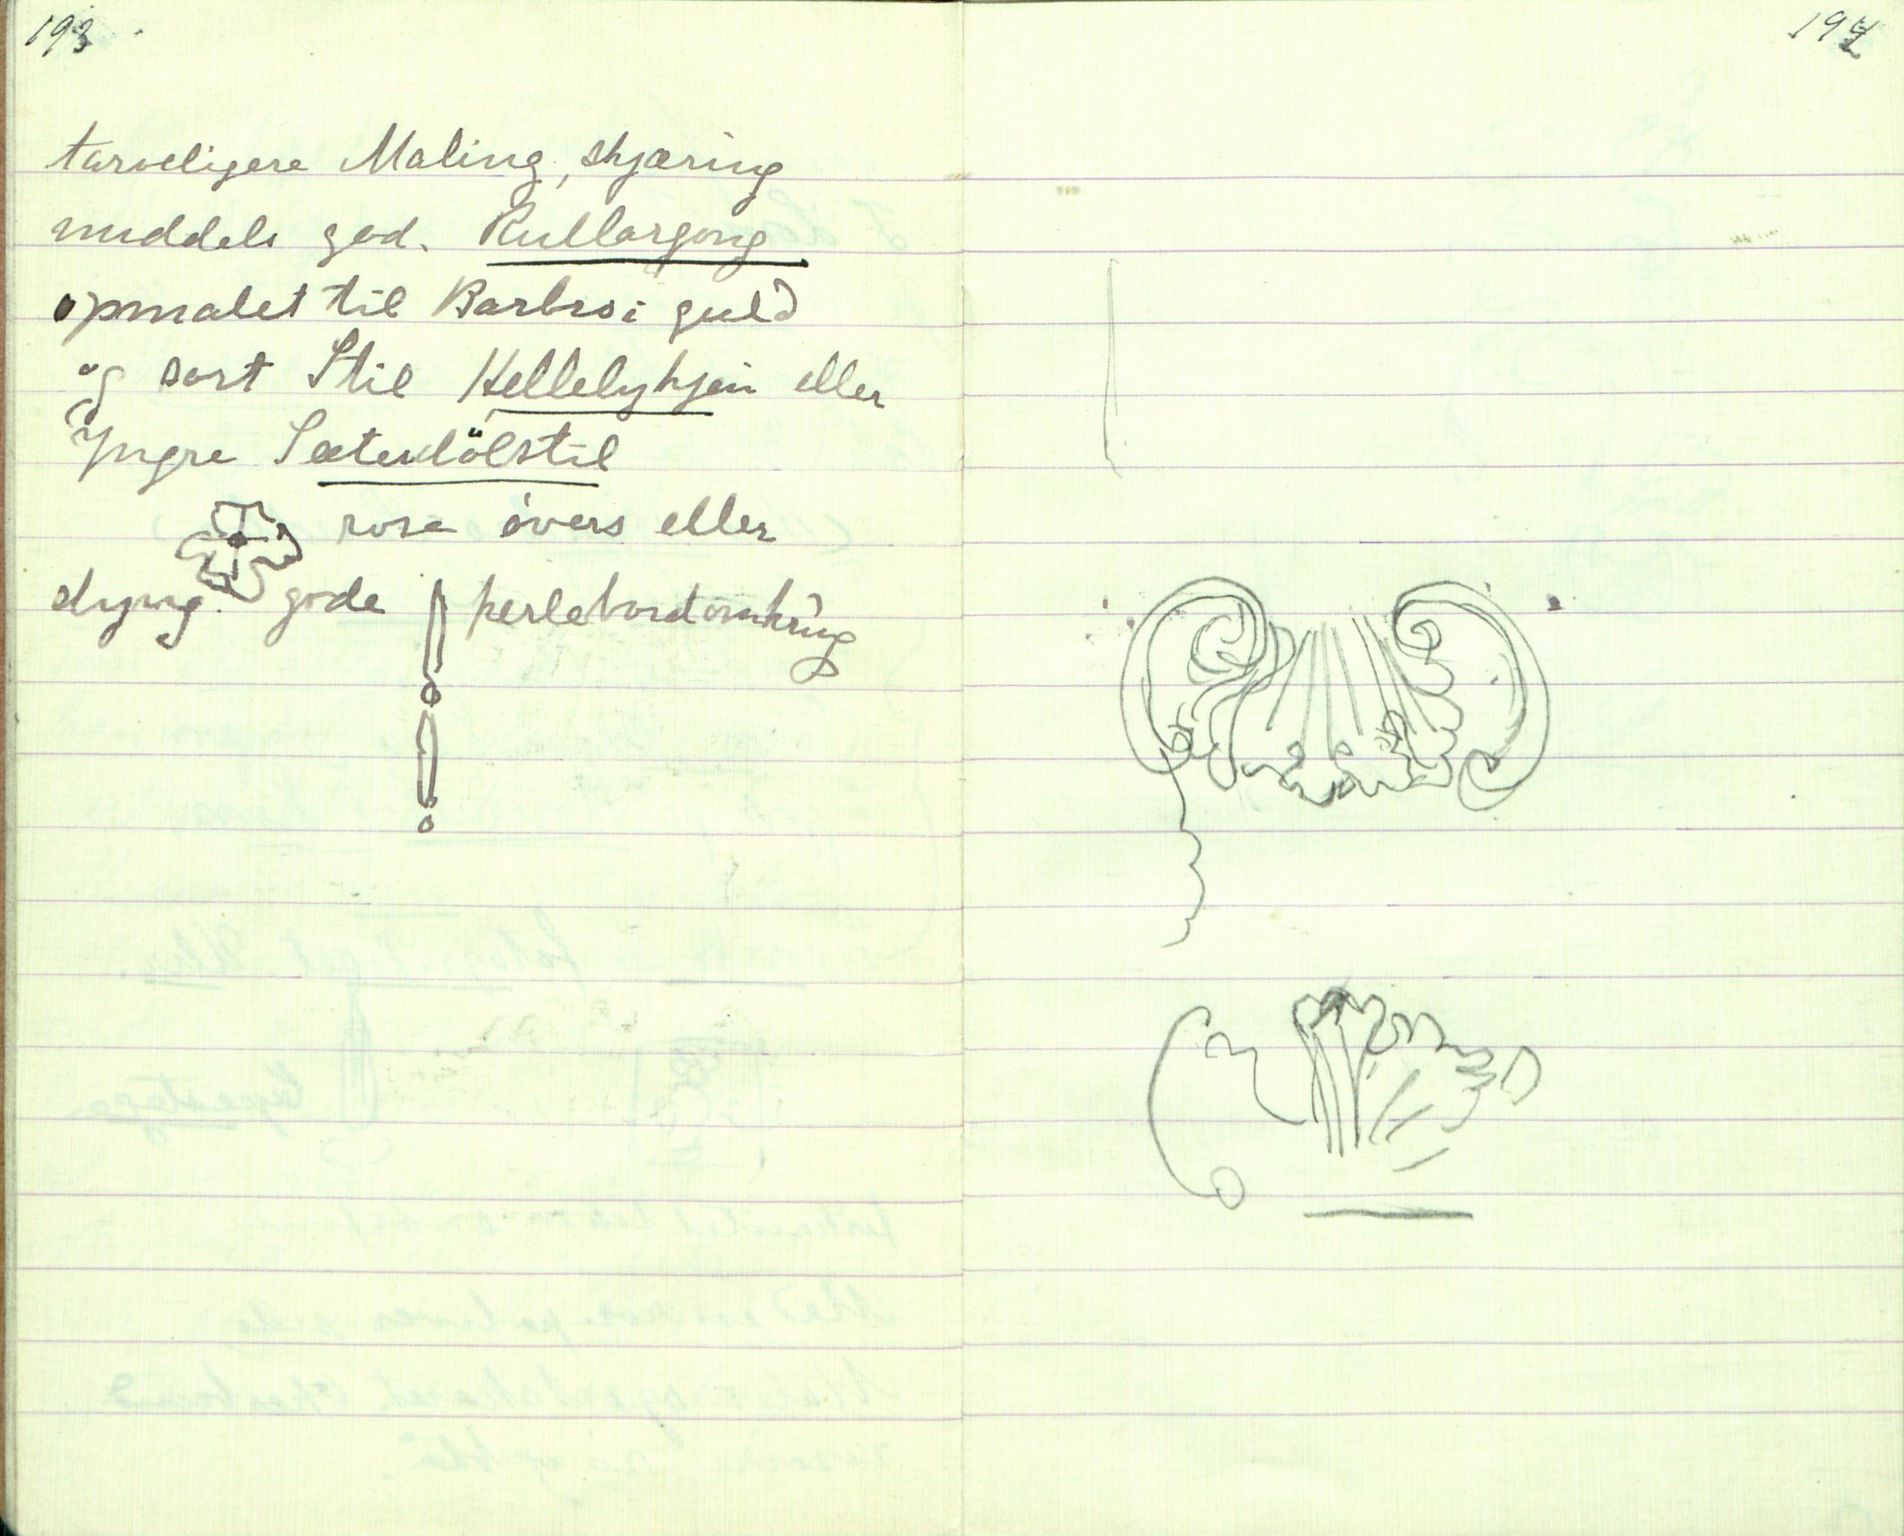 193
tarveligere Maling, skjæring
middels god. Rullorgong
opmalet til Barbro i guld
og sort Stil Hellelykjen eller
Yngre Sæterdölstil
rose övers eller
gode perlebord omkring
194